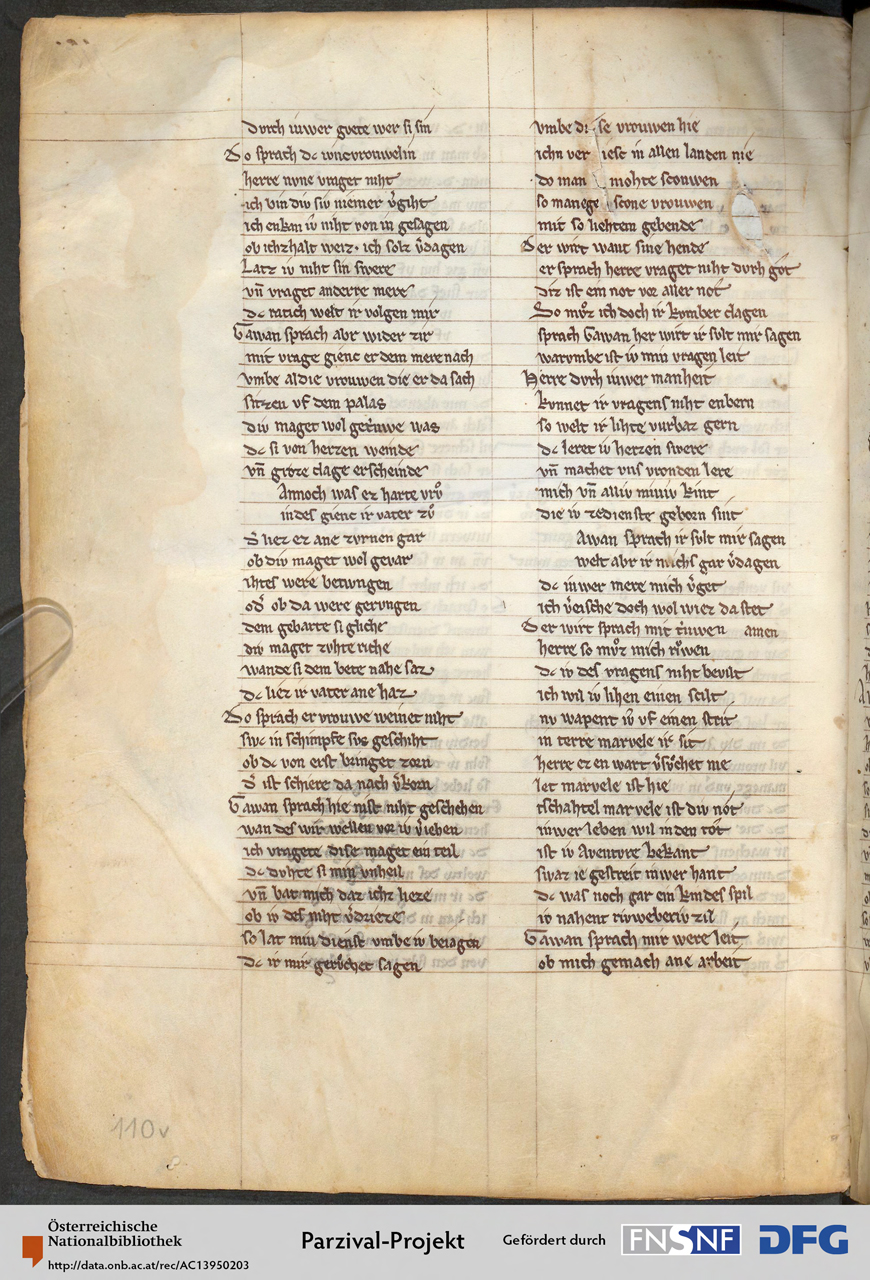 dvrch iuwer gvete wer si sin
So sprach dc iuncvrouwelin
herre nvne vraget niht
ich bin div siv niemer v̾giht
ich enkan iv niht von in gesagen
ob ichz halt weiz · ich solz v̾dagen
Latz iv niht sin swere
vn̄ vraget anderre mere
dc ratich welt ir volgen mir
Gawan sprach abr wider zir
mit vrage gienc er dem mere nach
vmbe al die vrouwen die er da sach
sitzen vf dem palas
div maget wol getriuwe was
dc si von herzen weinde
vn̄ groze clage erscheinde
Annoch was ez harte vrů
indes gienc ir vater zů
liez ez ane zvrnen gar
ob div maget wol gevar
ihtes were betwngen
od̾ ob da were gervngen
dem gebarte si gliche
div maget zvhte riche
wande si dem bete nahe saz
dc liez ir vater ane haz
Do sprach er vrouwe weinet niht
swc in schimpfe svs geschiht
ob dc von erst bringet zorn
d̾ ist schiere da nach v̾korn
Gawan sprach hie nist niht geschehen
wan des wir wellen vor iv v̾iehen
ich vragete dise maget ein teil
dc dvhte si min vnheil
vn̄ bat mich daz ichz lieze
ob iv des niht v̾drieze
so lat min dienst vmbe iv beiagen
dc ir mir gerůchet sagen
vmbe dise vrouwen hie
ichn ver iesc in allen landen nie
do man mohte scouwen
so manege scone vrouwen
mit so liehtem gebende
Der wirt want sine hende
er sprach herre vraget niht dvrh got
diz ist ein not vor aller not
So můz ich doch ir kvmber clagen
sprach Gawan her wirt ir svlt mir sagen
warvmbe ist iv min vragen leit
Herre dvrch iuwer manheit
kvnnet ir vragens niht enbern
so welt ir lihte vurbaz gern
dc leret iv herzen swere
vn̄ machet vns vrouden lere
mich vn̄ alliv miniv kint
die iv ze dienste geborn sint
Awan sprach ir svlt mir sagen
welt abr ir michs gar v̾dagen
dc iuwer mere mich v̾get
ich v̾eische doch wol wiez da stet
Der wirt sprach mit triuwen amen
herre so můz mich růwen
dc iv des vragens niht bevilt
ich wil iv lihen einen scilt
nv wapent iv vf einen strit
in terre marvele ir sit
herre ez en wart v̾sůchet nie
let marvele ist hie
tschahtel marvele ist div not
iuwer leben wil in den tot
ist iv Aventvre bekant
swaz ie gestreit iuwer hant
dc was noch gar ein kindes spil
iv nahent riuweberiv zil
Gawan sprach mir were leit
ob mich gemach ane arbeit
110v
Österreichische
Nationalbibliothek
http://data.onb.ac.at/rec/AC13950203
Parzival-Projekt
Gefördert durch
FNSNF
DFG